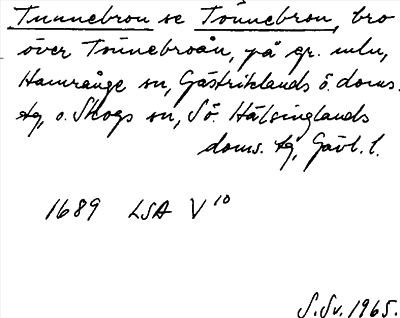 Tunnebron se Tönnebron, bro
över Tönnebroån, på gr. mln,
Hamrånge sn, Gästriklands ö. doms.
tg, o. Skogs sn, Sö. Hälsinglands
doms. tg, Gävl. l.
1689 LSA V 10
S. Sv. 1965.